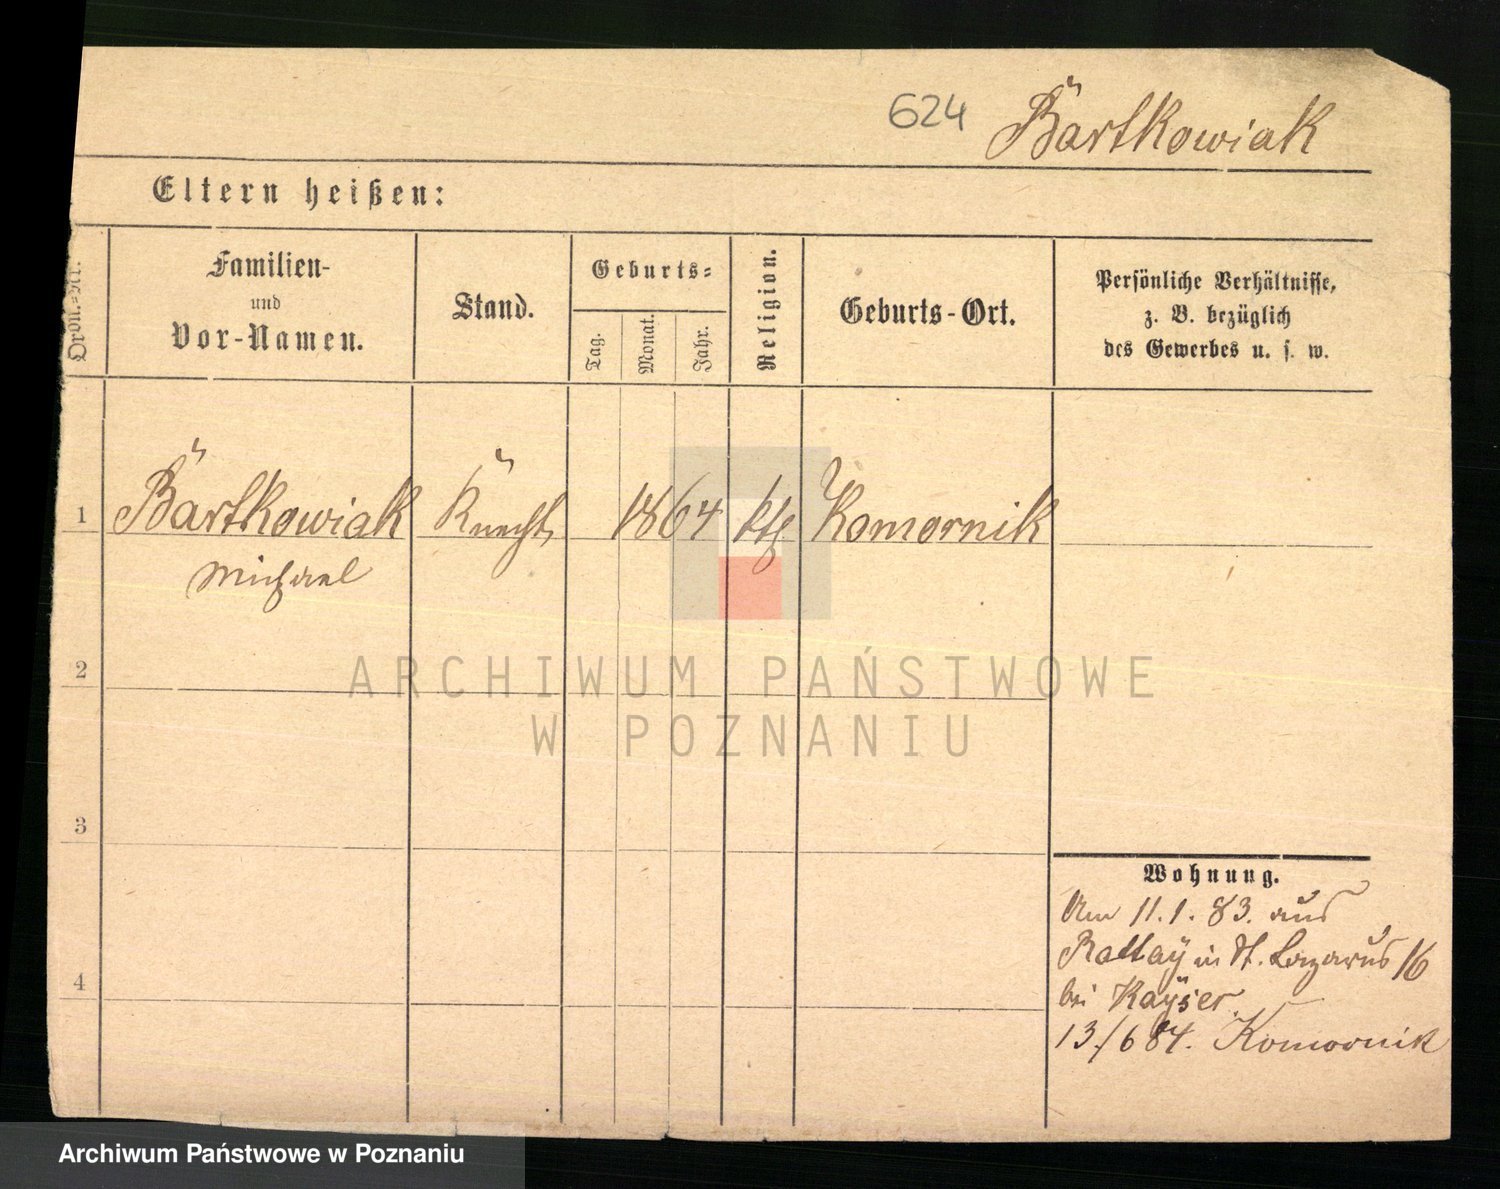 624 Bartkowiak
Eltern heißen:
Ordn.-Nr.
Familien-
und
Vor-Namen.
Stand.
Geburts-
Tag.
Monat.
Jahr.
Religion.
Geburts-Ort.
Persönliche Verhältnisse,
z. B. bezüglich
des Gewerbes u. s. w.
1 Bartkowiak Knecht 1864 kth. Komornik
Michael
2
3
4
Wohnung.
Am 11.1.83. aus
Rattay in St. Lazarus 16
bei Kayser.
13./6 84. Komornik
ARCHIWUM PAŃSTWOWE
W POZNANIU
Archiwum Państwowe w Poznaniu